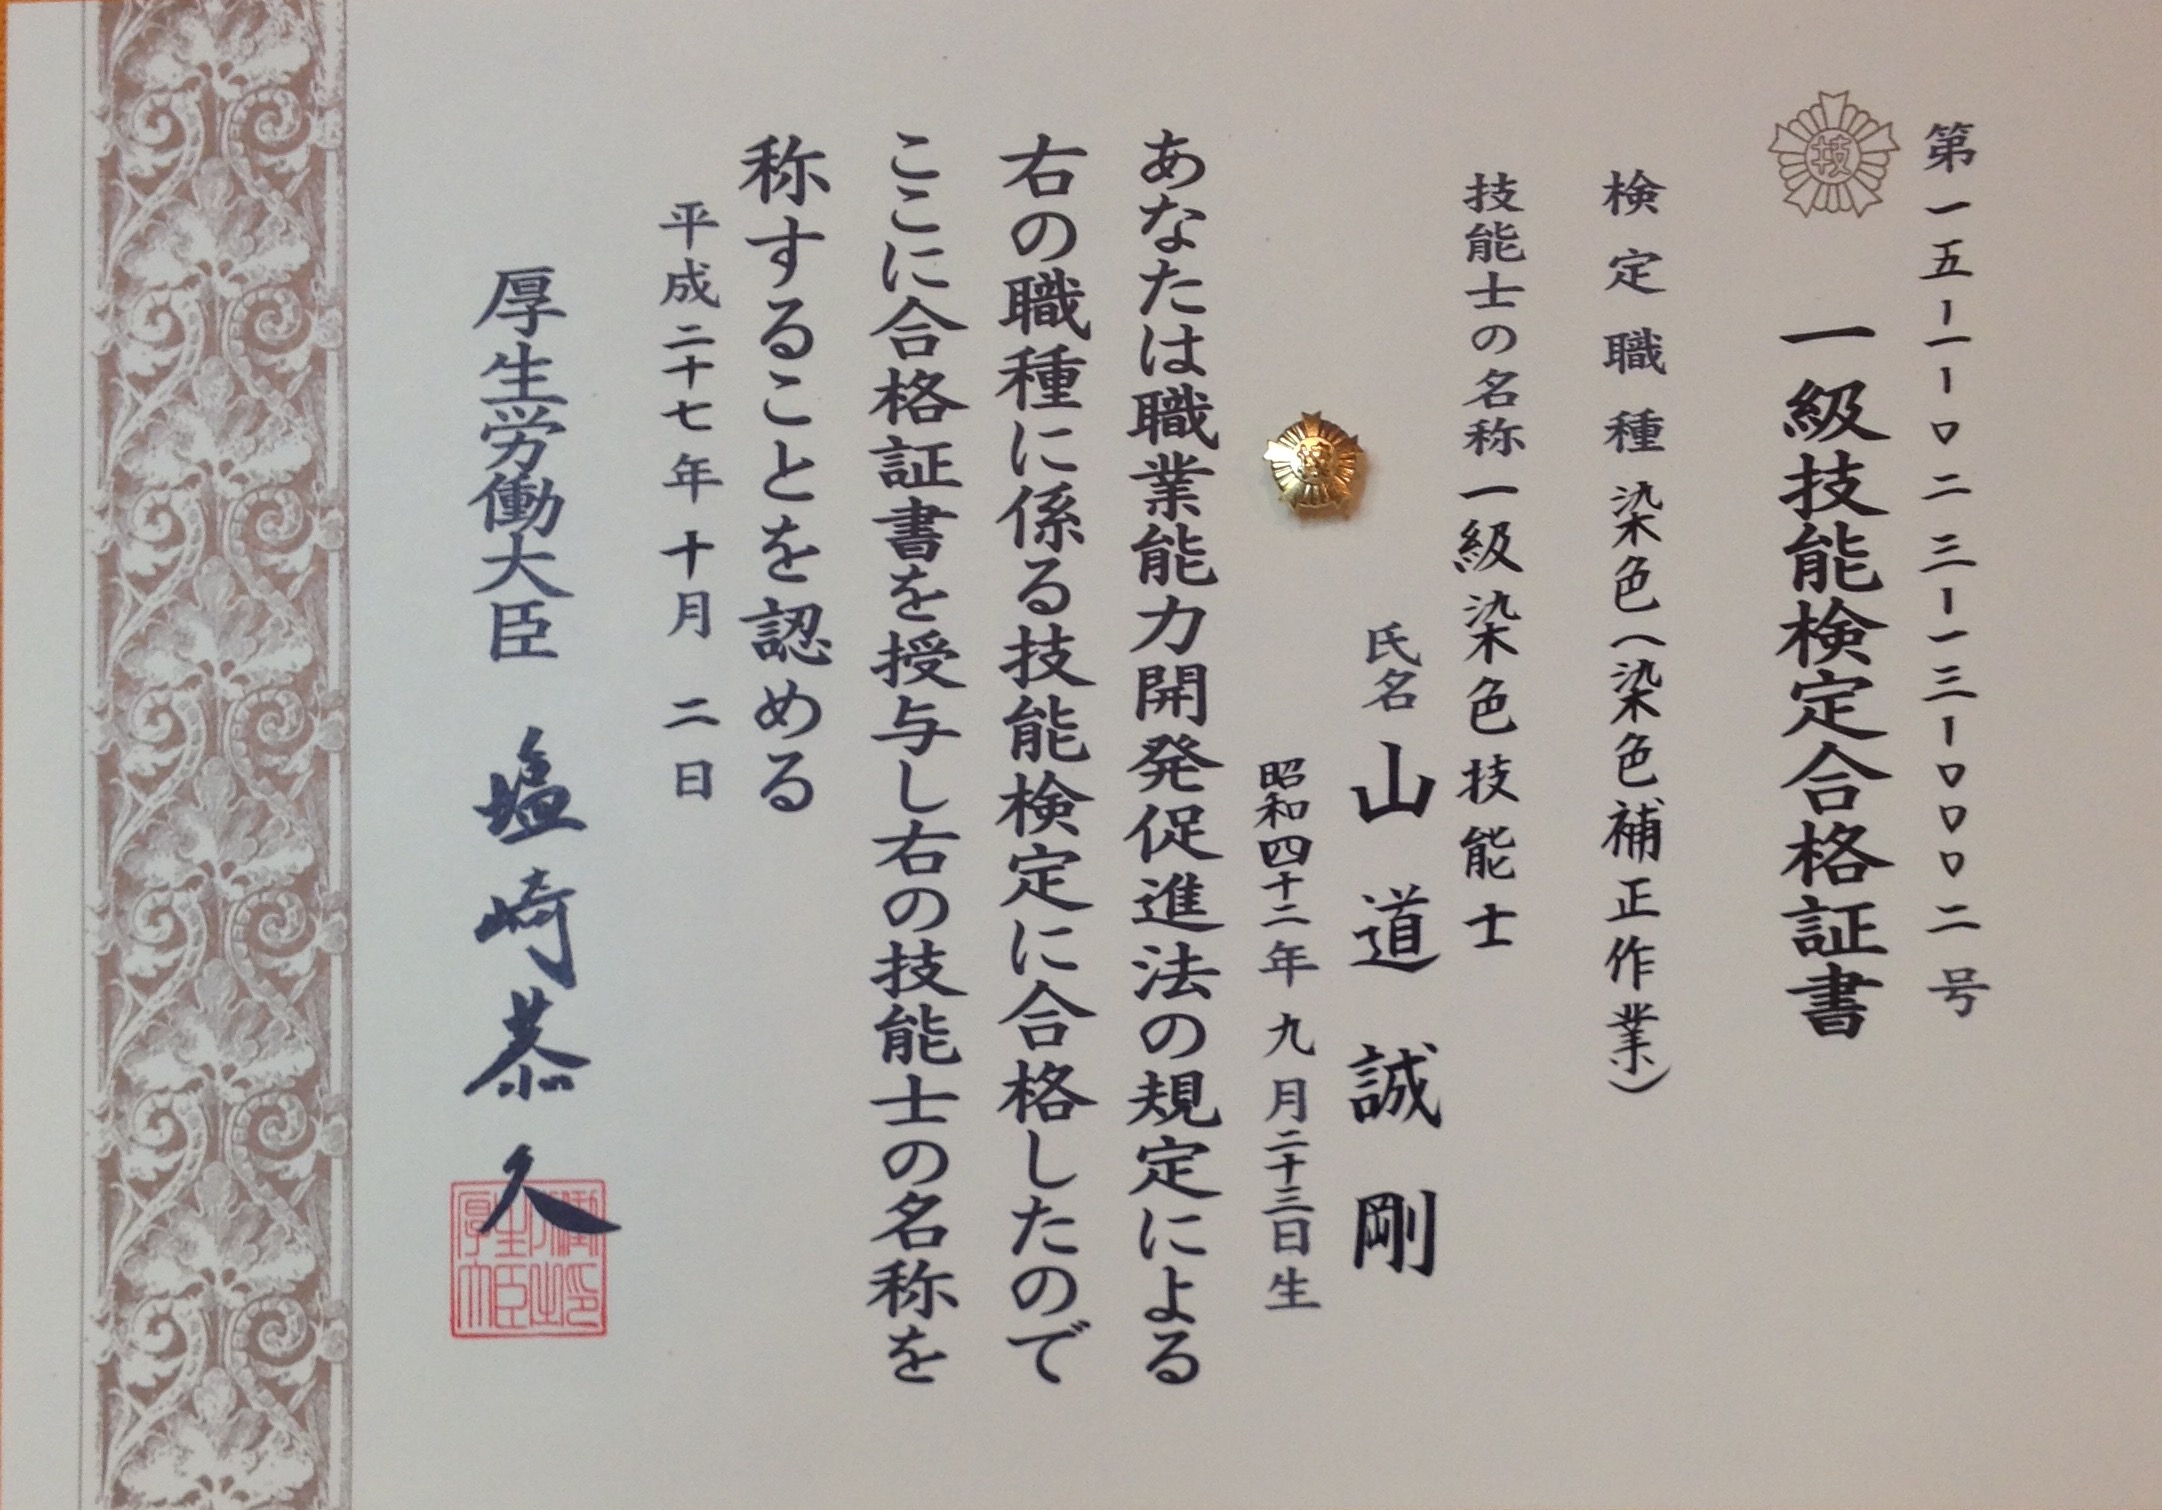 第一五-一-〇二三-一三-〇〇〇二号
技
一級技能検定合格証書
検定職種 染色(染色補正作業)
技能士の名称 一級染色技能士
氏名 山道誠剛
昭和四十二年九月二十三日生
あなたは職業能力開発促進法の規定による
右の職種に係る技能検定に合格したので
ここに合格証書を授与し右の技能士の名称を
称することを認める
平成二十七年十月二日
厚生労働大臣 塩崎恭久